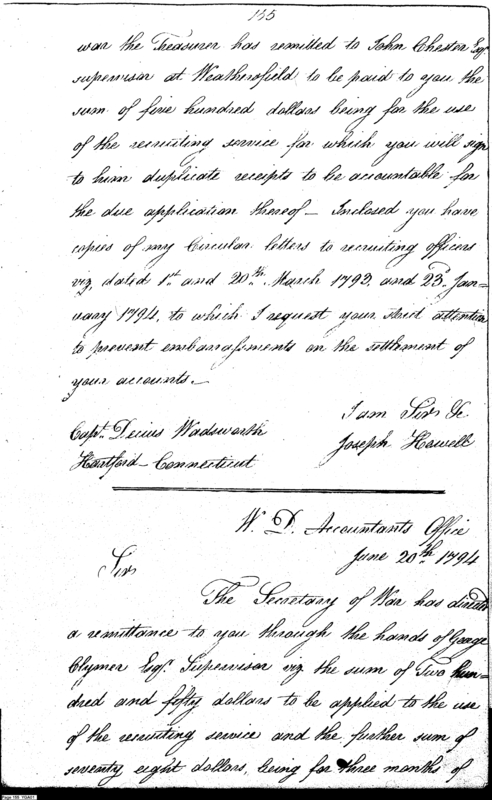 155
war the Treasurer has remitted to John Chester Esqr
supervisor at Weathersfield to be paid to you the
sum of five hundred dollars being for the use
of the recruiting service for which you will sign
to him duplicate receipts to be accountable for
the due application thereof — Inclosed you have
copies of my Circular letters to recruiting officers
viz, dated 1st and 20th March 1793, and 23d Jan-
uary 1794, to which I request your strict attention
to prevent embarrassments on the settlement of
your accounts.—
I am Sir &c
Capt. Decius Wadsworth
Joseph Howell
Hartford — Connecticut
W. D. Accountants Office
June 20th 1794
Sir
The Secretary of War has directed
a remittance to you through the hands of George
Clymer Esqr. Supervisor viz the sum of Two hun-
dred and fifty dollars to be applied to the use
of the recruiting service and the further sum of
seventy eight dollars, being for three months of